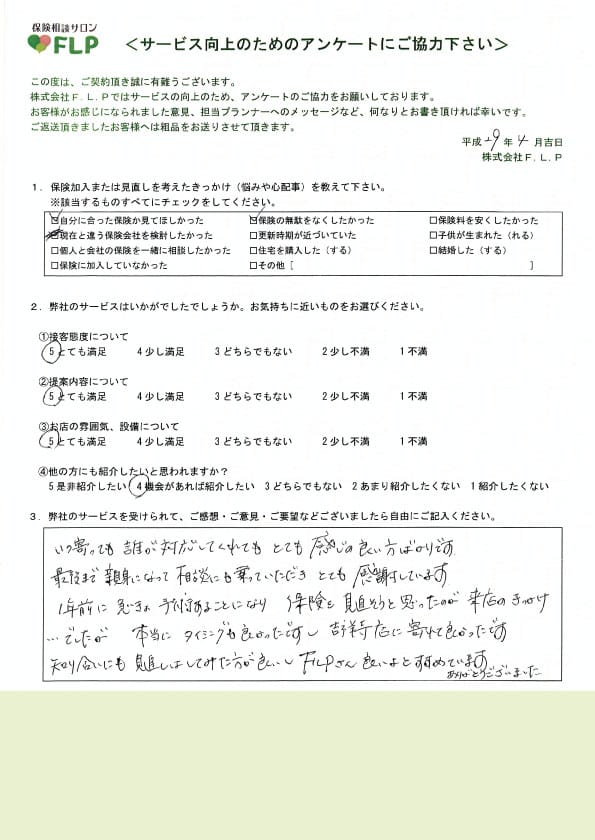 保険相談サロン
FLP
＜サービス向上のためのアンケートにご協力下さい＞
この度は、ご契約頂き誠に有難うございます。
株式会社Ｆ.Ｌ.Ｐではサービスの向上のため、アンケートのご協力をお願いしております。
お客様がお感じになられました意見、担当プランナーへのメッセージなど、何なりとお書き頂ければ幸いです。
ご返送頂きましたお客様へは粗品をお送りさせて頂きます。
平成 29 年 4 月吉日
株式会社Ｆ.Ｌ.Ｐ
１．保険加入または見直しを考えたきっかけ（悩みや心配事）を教えて下さい。
※該当するものすべてにチェックをしてください。
☑自分に合った保険か見てほしかった ☑保険の無駄をなくしたかった □保険料を安くしたかった
☑現在と違う保険会社を検討したかった □更新時期が近づいていた □子供が生まれた（れる）
□個人と会社の保険を一緒に相談したかった □住宅を購入した（する） □結婚した（する）
□保険に加入していなかった □その他［ ］
２．弊社のサービスはいかがでしたでしょうか。お気持ちに近いものをお選びください。
①接客態度について
５とても満足 ４少し満足 ３どちらでもない ２少し不満 １不満
②提案内容について
５とても満足 ４少し満足 ３どちらでもない ２少し不満 １不満
③お店の雰囲気、設備について
５とても満足 ４少し満足 ３どちらでもない ２少し不満 １不満
④他の方にも紹介したいと思われますか？
５是非紹介したい ４機会があれば紹介したい ３どちらでもない ２あまり紹介したくない １紹介したくない
３．弊社のサービスを受けられて、ご感想・ご意見・ご要望などございましたら自由にご記入ください。
いつ寄っても 誰が対応してくれても とても 感じの良い方ばかりです
最後まで 親身になって 相談にも乗っていただき とても 感謝しています
1年前に 手術することになり 保険を見直そうと思ったのが 来店のきっかけ
…でしたが 本当に タイミングも良かったですし 吉祥寺店に寄れて良かったです
知り合いにも 見直しはしてみた方が良いし FLPさん良いよとすすめています
ありがとうございました